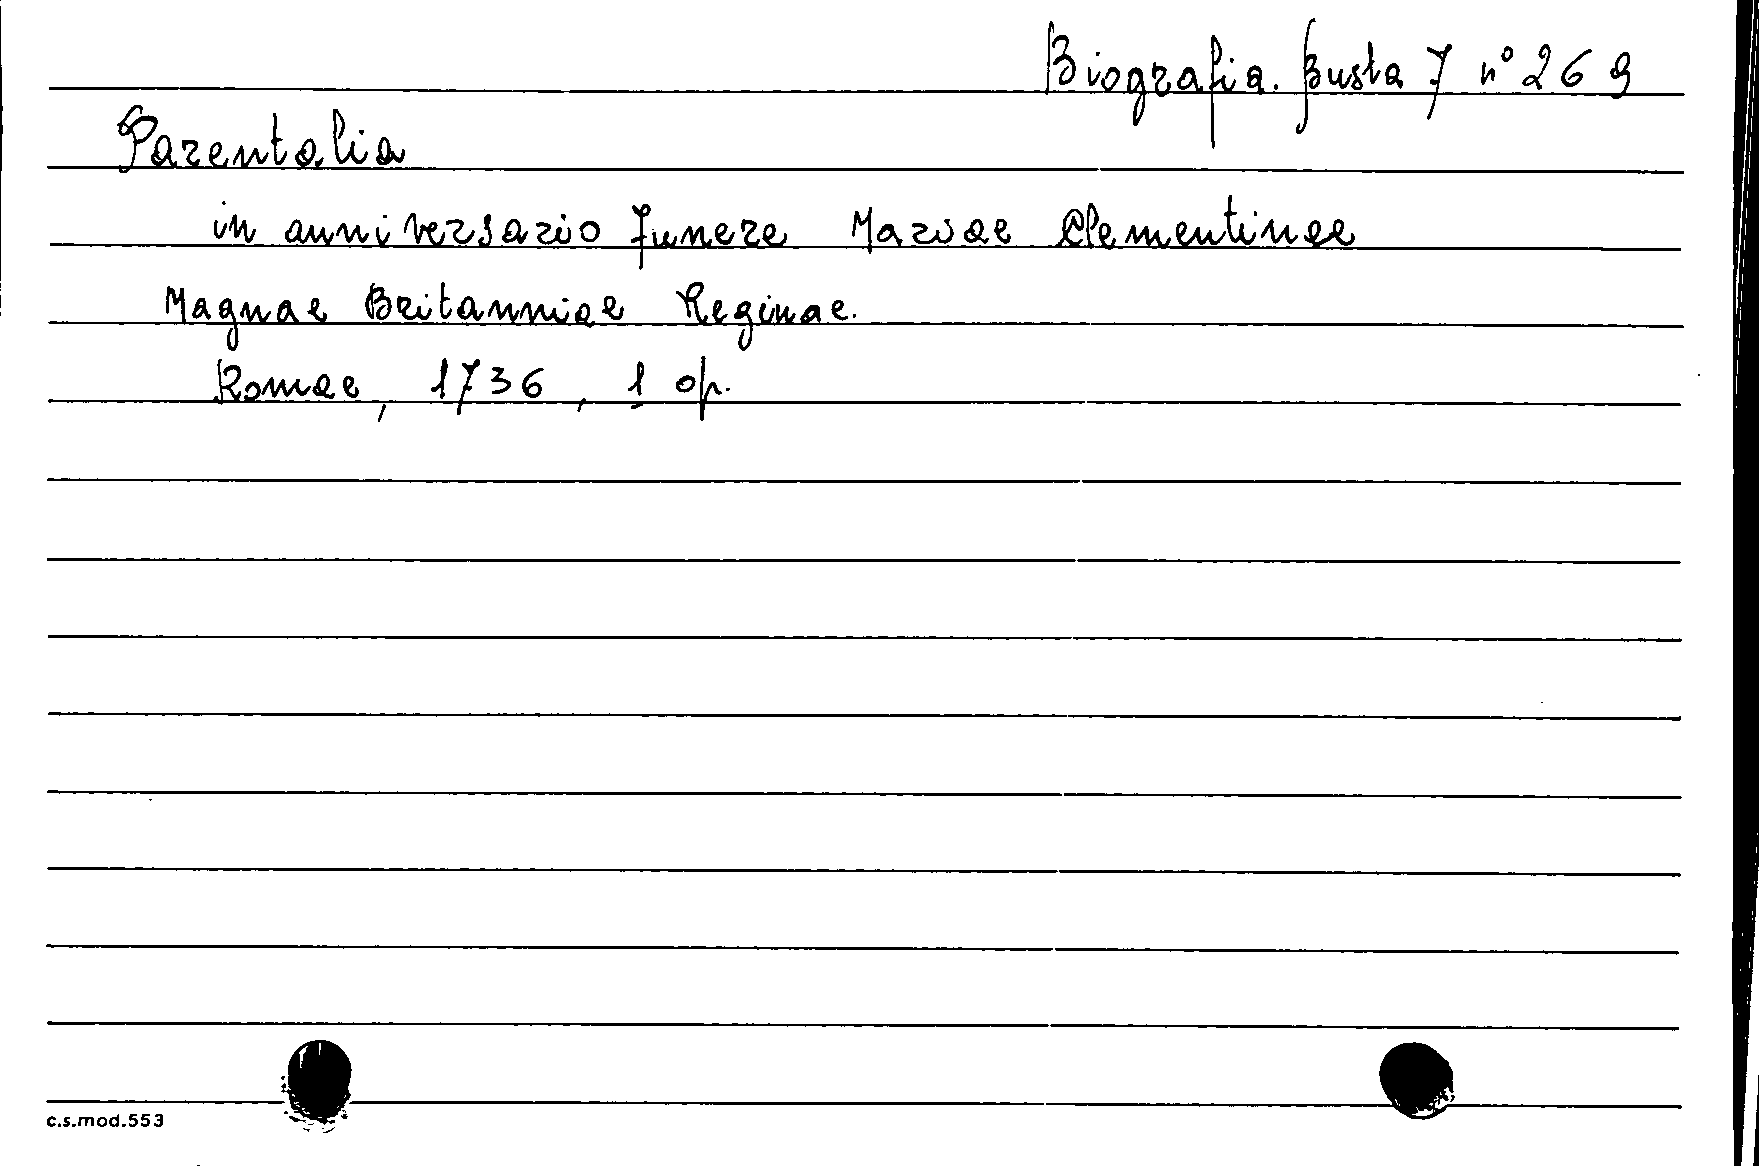 Biografia. Busta 7 n° 269
Parentalia
in anniversario funere Mariae Clementinae
Magnae Britanniae Reginae.
Romae, 1736, 1 op.
c.s.mod.553